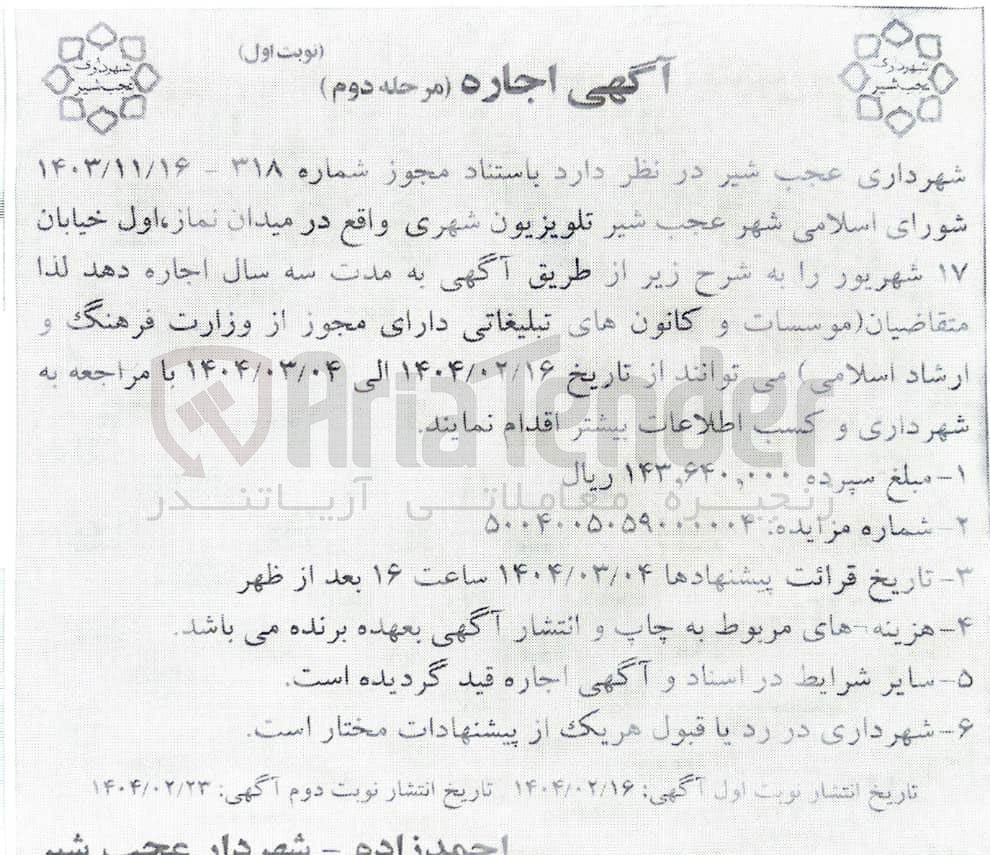 شهرداری
عجب شیر
(نوبت اول)
آگهی اجاره (مرحله دوم)
شهرداری
عجب شیر
شهرداری عجب شیر در نظر دارد باستناد مجوز شماره ۳۱۸ - ۱۴۰۳/۱۱/۱۶
شورای اسلامی شهر عجب شیر تلویزیون شهری واقع در میدان نماز،اول خیابان
۱۷ شهریور را به شرح زیر از طریق آگهی به مدت سه سال اجاره دهد لذا
متقاضیان(موسسات و کانون های تبلیغاتی دارای مجوز از وزارت فرهنگ و
ارشاد اسلامی) می توانند از تاریخ ۱۴۰۴/۰۲/۱۶ الی ۱۴۰۴/۰۳/۰۴ با مراجعه به
شهرداری و کسب اطلاعات بیشتر اقدام نمایند.
AriaTender
۱-مبلغ سپرده ۱۴۳,۶۴۰,۰۰۰ ریال
زنجیره معاملاتی آریاتندر
۲-شماره مزایده: ۵۰۰۴۰۰۵۰۵۹۰۰۰۰۰۴
۳-تاریخ قرائت پیشنهادها ۱۴۰۴/۰۳/۰۴ ساعت ۱۶ بعد از ظهر
۴-هزینه-های مربوط به چاپ و انتشار آگهی بعهده برنده می باشد.
۵-سایر شرایط در اسناد و آگهی اجاره قید گردیده است.
۶-شهرداری در رد یا قبول هریک از پیشنهادات مختار است.
تاریخ انتشار نوبت اول آگهی: ۱۴۰۴/۰۲/۱۶ تاریخ انتشار نوبت دوم آگهی: ۱۴۰۴/۰۲/۲۳
احمدزاده - شهردار عجب شیر